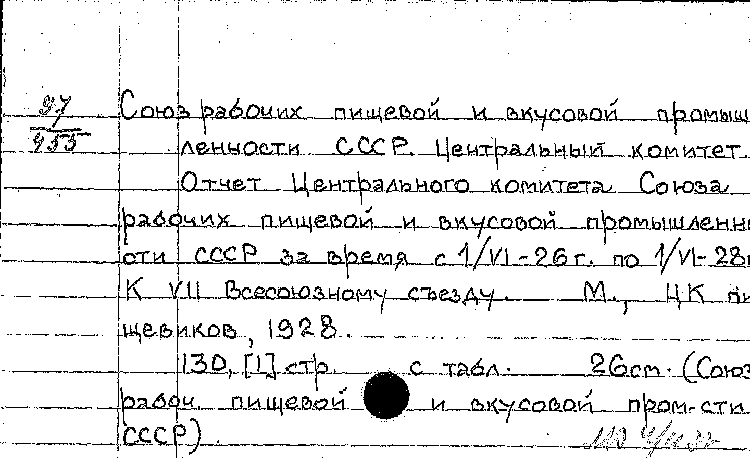 97
455
Союз рабочих пищевой и вкусовой промыш
ленности СССР. Центральный комитет
Отчет Центрального комитета Союза
рабочих пищевой и вкусовой промышленно
сти СССР за время с 1/VI-26г. по 1/VI-28г
К VII Всесоюзному съезду. М., ЦК пи
щевиков, 1928.
130, [1] стр. с табл. 26см. (Союз
рабоч. пищевой и вкусовой пром-сти
СССР)